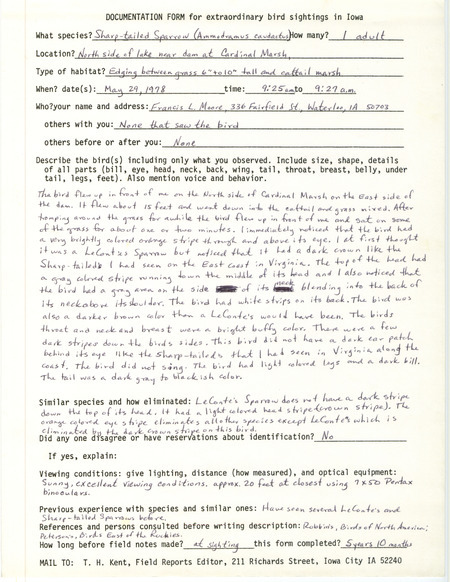 DOCUMENTATION FORM for extraordinary bird sightings in Iowa
What species? Sharp-tailed Sparrow (Ammodramus caudactus) How many? 1 adult
Location? North side of lake near dam at Cardinal Marsh,
Type of habitat? Edging between grass 6" to 10" tall and cattail marsh
When? date(s): May 29, 1978 time: 9:25am to 9:27a.m.
Who?your name and address: Francis L. Moore, 336 Fairfield St, Waterloo, IA 50703
others with you: None that saw the bird
others before or after you: None
Describe the bird(s) including only what you observed. Include size, shape, details
of all parts (bill, eye, head, neck, back, wing, tail, throat, breast, belly, under
tail, legs, feet). Also mention voice and behavior.
The bird flew up in front of me on the North side of Cardinal Marsh on the East side of
the dam. It flew about 15 feet and went down into the cattail and grass mixed. After
tramping around the grass for awhile the bird flew up in front of me and sat on some
of the grass for about one or two minutes. I immediately noticed that the bird had
a very brightly colored orange stripe through and above its eye. I at first thought
it was a LeConte's Sparrow but noticed that it had a dark crown like the
Sharp-taileds I had seen on the East coast in Virginia. The top of the head had
a gray colored stripe running down the middle of its head and I also noticed that
the bird had a gray area on the side of its neck blending into the back of
its neck above its shoulder. The bird had white strips on its back. The bird was
also a darker brown color than a LeConte's would have been. The birds
throat and neck and breast were a bright buffy color. There were a few
dark stripes down the birds sides. This bird did not have a dark ear patch
behind its eye like the Sharp-taileds that I had seen in Virginia along the
coast. The bird did not sing. The bird had light colored legs and a dark bill.
The tail was a dark gray to blackish color.
Similar species and how eliminated: LeConte's Sparrow does not have a dark stripe
down the top of its head. It had a light colored head stripe (crown stripe). The
orange colored eye stripe eliminates all other species except LeConte's which is
eliminated by the dark crown stripe on this bird.
Did any one disagree or have reservations about identification? No
If yes, explain:
Viewing conditions: give lighting, distance (how measured), and optical equipment:
Sunny, excellent viewing conditions. approx. 20 feet at closest using 7x50 Pentax
binoculars.
Previous experience with species and similar ones: Have seen several LeConte's and
Sharp-tailed Sparrows before.
References and persons consulted before writing description: Robbins, Birds of North American;
Peterson's, Birds East of the Rockies.
How long before field notes made? at sighting this form completed? 5 years 10 months
MAIL TO: T. H. Kent, Field Reports Editor, 211 Richards Street, Iowa City IA 52240